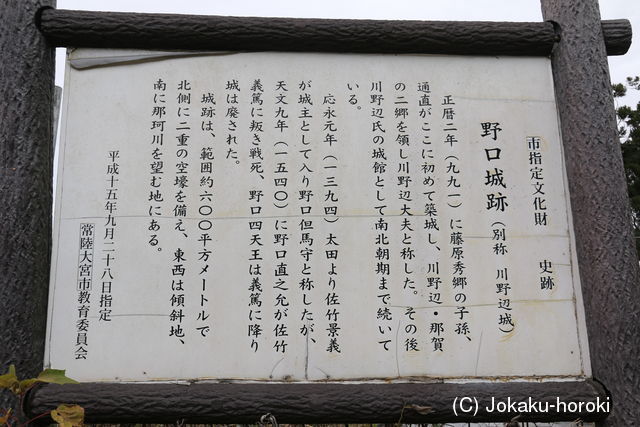 市指定文化財　史跡
野口城跡（別称　川野辺城）
正暦二年（九九一）に藤原秀郷の子孫、
通直がここに初めて築城し、川野辺・那賀
の二郷を領し川野辺大夫と称した。その後
川野辺氏の城館として南北朝期まで続いて
いる。
応永元年（一三九四）太田より佐竹景義
が城主として入り野口但馬守と称したが、
天文九年（一五四〇）に野口直之允が佐竹
義篤に叛き戦死、野口四天王は義篤に降り
城は廃された。
城跡は、範囲約六〇〇平方メートルで
北側に二重の空壕を備え、東西は傾斜地、
南に那珂川を望む地にある。
平成十五年九月二十八日指定
常陸大宮市教育委員会
(C) Jokaku-horoki